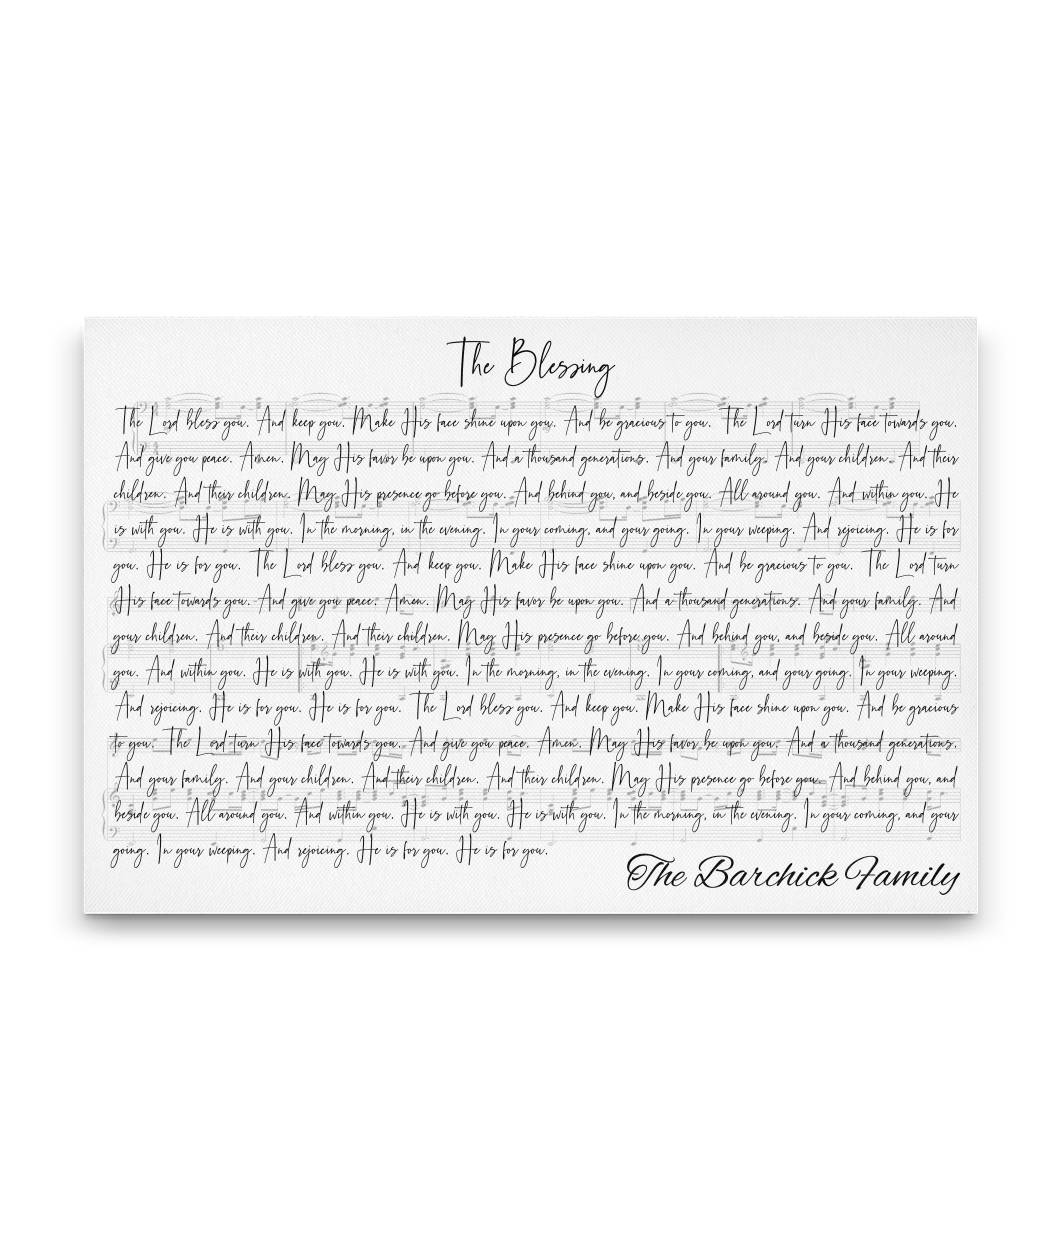 The Blessing
The Lord bless you. And keep you. Make His face shine upon you. And be gracious to you. The Lord turn His face towards you.
And give you peace. Amen. May His favor be upon you. And a thousand generations. And your family. And your children. And their
children. And their children. May His presence go before you. And behind you, and beside you. All around you. And within you. He
is with you. He is with you. In the morning, in the evening. In your coming, and your going. In your weeping. And rejoicing. He is for
you. He is for you. The Lord bless you. And keep you. Make His face shine upon you. And be gracious to you. The Lord turn
His face towards you. And give you peace. Amen. May His favor be upon you. And a thousand generations. And your family. And
your children. And their children. And their children. May His presence go before you. And behind you, and beside you. All around
you. And within you. He is with you. He is with you. In the morning, in the evening. In your coming, and your going. In your weeping.
And rejoicing. He is for you. He is for you. The Lord bless you. And keep you. Make His face shine upon you. And be gracious
to you. The Lord turn His face towards you. And give you peace. Amen. May His favor be upon you. And a thousand generations.
And your family. And your children. And their children. And their children. May His presence go before you. And behind you, and
beside you. All around you. And within you. He is with you. He is with you. In the morning, in the evening. In your coming, and your
going. In your weeping. And rejoicing. He is for you. He is for you.
The Barchick Family